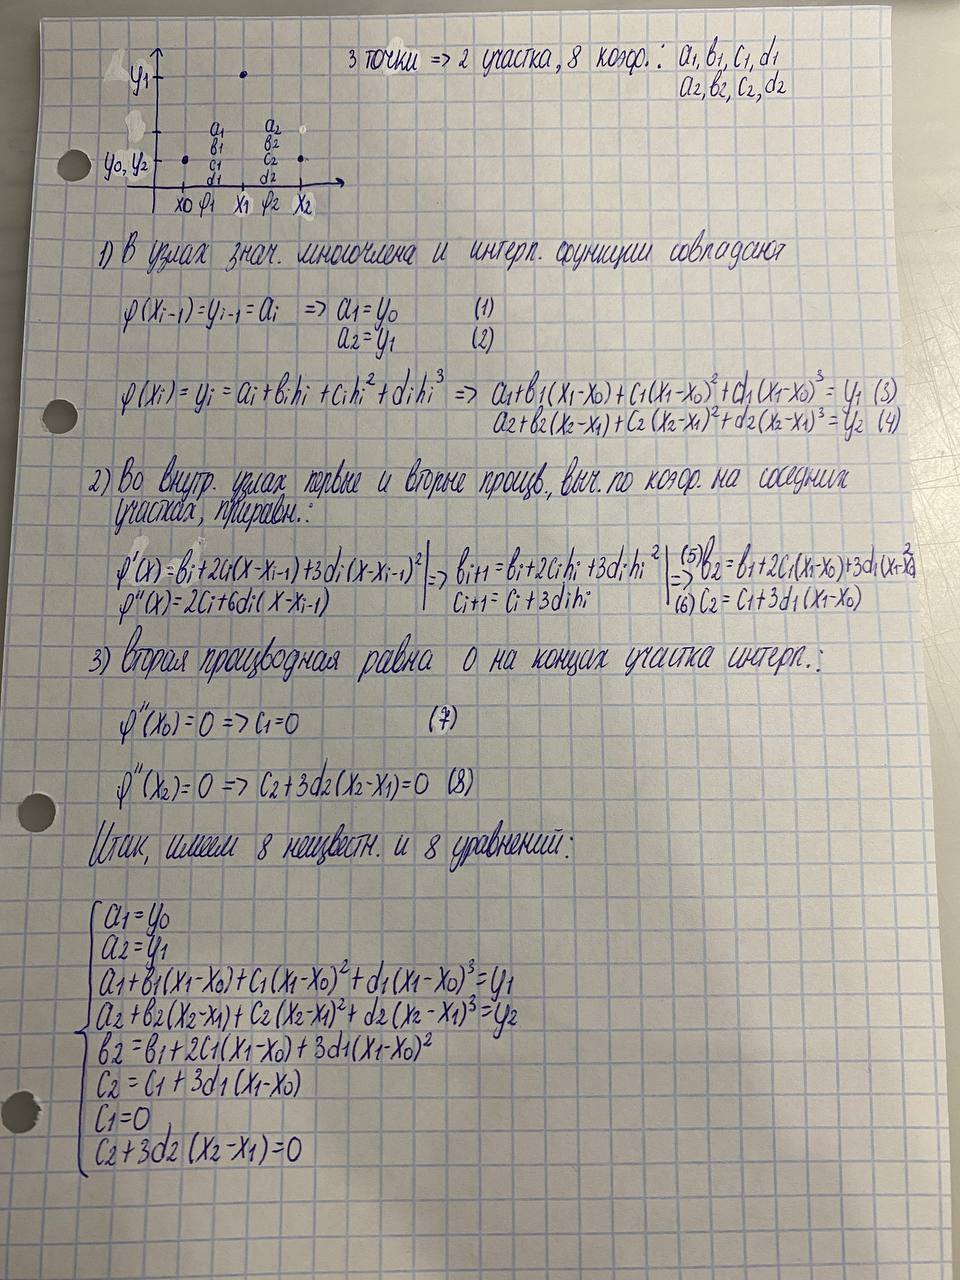 3 точки => 2 участка, 8 коэф.: a1, b1, c1, d1
a2, b2, c2, d2
y1
y0, y2
a1 a2
b1 b2
c1 c2
d1 d2
x0 φ1 x1 φ2 x2
1) В узлах знач. многочлена и интерп. функции совпадают
φ(xi-1) = yi-1 = ai => a1 = y0 (1)
a2 = y1 (2)
φ(xi) = yi = ai + bihi + cihi² + dihi³ => a1 + b1(x1-x0) + c1(x1-x0)² + d1(x1-x0)³ = y1 (3)
a2 + b2(x2-x1) + c2(x2-x1)² + d2(x2-x1)³ = y2 (4)
2) Во внутр. узлах первые и вторые произв., выч. по коэф. на соседних
участках, приравн.:
φ'(x) = bi + 2ci(x-xi-1) + 3di(x-xi-1)² | => bi+1 = bi + 2cihi + 3dihi² | => (5) b2 = b1 + 2c1(x1-x0) + 3d1(x1-x0)²
φ''(x) = 2ci + 6di(x-xi-1) | ci+1 = ci + 3dihi | (6) c2 = c1 + 3d1(x1-x0)
3) Вторая производная равна 0 на концах участка интерп.:
φ''(x0) = 0 => c1 = 0 (7)
φ''(x2) = 0 => c2 + 3d2(x2-x1) = 0 (8)
Итак, имеем 8 неизвестн. и 8 уравнений:
a1 = y0
a2 = y1
a1 + b1(x1-x0) + c1(x1-x0)² + d1(x1-x0)³ = y1
a2 + b2(x2-x1) + c2(x2-x1)² + d2(x2-x1)³ = y2
b2 = b1 + 2c1(x1-x0) + 3d1(x1-x0)²
c2 = c1 + 3d1(x1-x0)
c1 = 0
c2 + 3d2(x2-x1) = 0